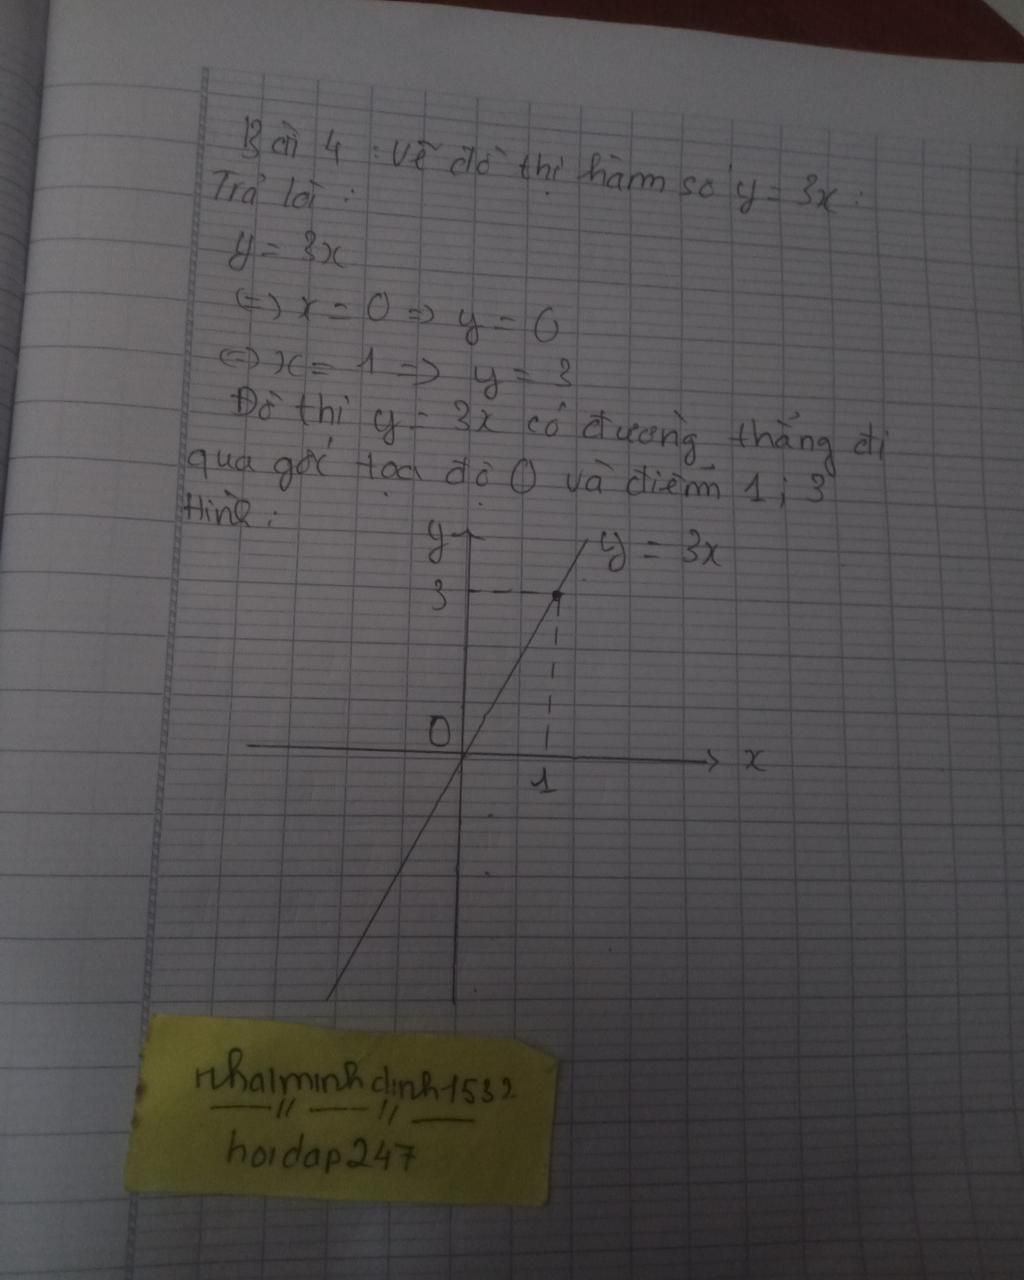 Bài 4: Vẽ đồ thị hàm số y = 3x:
Trả lời:
y = 3x
<=> x = 0 => y = 0
<=> x = 1 => y = 3
Đồ thị y = 3x có đường thẳng đi
qua gốc tọa độ O và điểm 1; 3
Hình:
y
y = 3x
3
O
x
1
nhalminhdinh1532
hoidap247